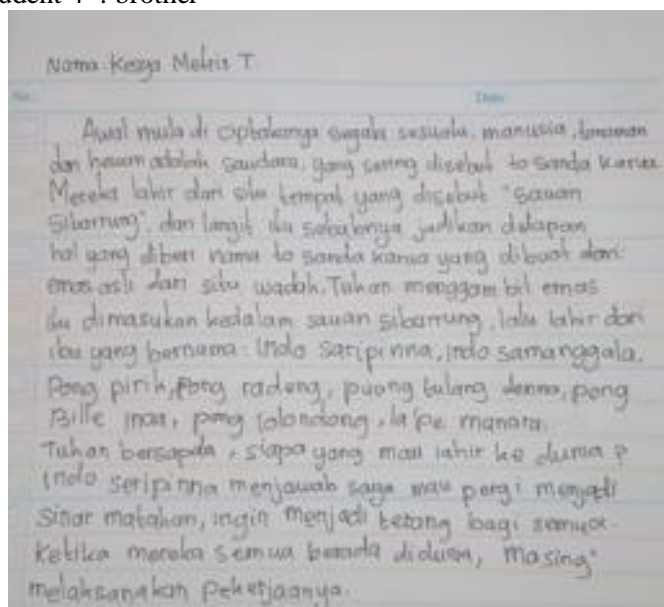 udent 4 : brother
Nama: Kesya Melris T.
No. Date:
Awal mula di ciptakanya segala sesuatu, manusia, tanaman
dan hewan adalah saudara, yang sering disebut to sanda karua
Mereka lahir dari situ tempat yang disebut "Sauan
Sibarrung", dan langit itu sebabnya jadikan delapan
hal yang diberi nama to sanda karua yang dibuat dari
emas asli dari situ wadah. Tuhan menggambil emas
itu dimasukan kedalam sauan sibarrung, lalu lahir dari
ibu yang bernama: Indo Saripinna, indo samanggala,
Pong pirik, Pong radeng, puang tulang denna, pong
Bille inaa, pong lolondong, la'pe manota.
Tuhan bersapda, siapa yang mau lahir ke dunia ?
Indo seripinna menjawab saya mau pergi menjadi
Sinar matahari, ingin menjadi terang bagi semua.
Ketika mereka semua berada didunia, masing"
melaksanakan pekerjaanya.